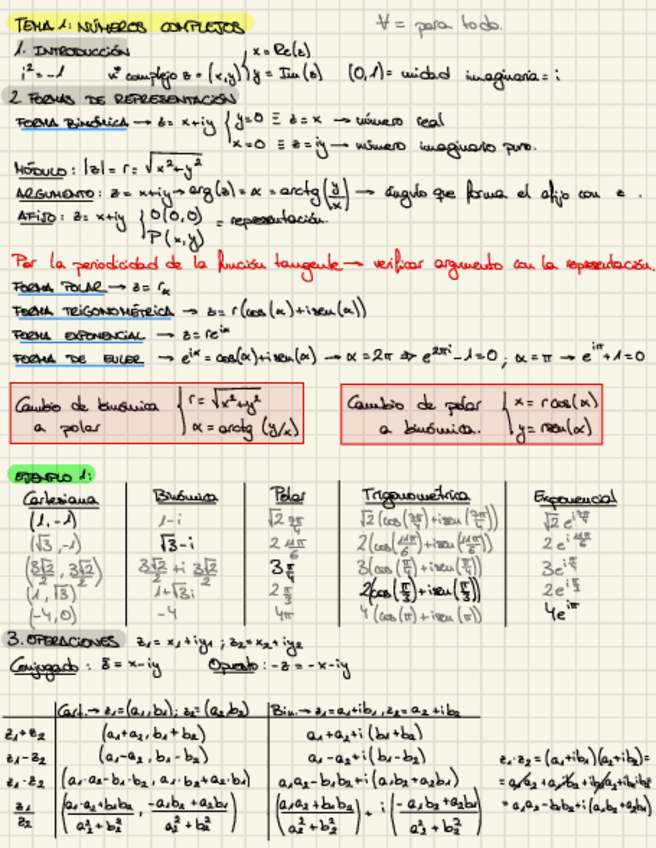 TEMA 1: NÚMEROS COMPLEJOS
∀ = para todo.
1. INTRODUCCIÓN
i² = -1 nº complejo z = (x,y) { x = Re(z) y = Im(z) (0,1) = unidad imaginaria = i
2. FORMAS DE REPRESENTACIÓN
FORMA BINÓMICA → z = x+iy { y=0 ≡ z=x → número real
x=0 ≡ z=iy → número imaginario puro.
MÓDULO: |z| = r = √(x²+y²)
ARGUMENTO: z = x+iy → arg(z) = α = arctg(y/x) → ángulo que forma el afijo con z .
AFIJO: z = x+iy { O(0,0) P(x,y) = representación.
Por la periodicidad de la función tangente → verificar argumento con la representación.
FORMA POLAR → z = r_α
FORMA TRIGONOMÉTRICA → z = r(cos(α)+isen(α))
FORMA EXPONENCIAL → z = re^(iα)
FORMA DE EULER → e^(iα) = cos(α)+isen(α) → α = 2π ⇒ e^(2πi) -1=0 ; α = π → e^(iπ) +1=0
Cambio de binómica a polar { r = √(x²+y²) α = arctg (y/x)
Cambio de polar a binómica. { x = rcos(α) y = rsen(α)
EJEMPLO 1:
Cartesiana Binómica Polar Trigonométrica Exponencial
(1,-1) 1-i √2 _(7π/4) √2(cos(7π/4)+isen(7π/4)) √2 e^(i7π/4)
(√3,-1) √3-i 2 _(11π/6) 2(cos(11π/6)+isen(11π/6)) 2e^(i11π/6)
(3√2/2, 3√2/2) 3√2/2 + i 3√2/2 3 _(π/4) 3(cos(π/4)+isen(π/4)) 3e^(iπ/4)
(1,√3) 1+√3i 2 _(π/3) 2(cos(π/3)+isen(π/3)) 2e^(iπ/3)
(-4,0) -4 4_π 4(cos(π)+isen(π)) 4e^(iπ)
3. OPERACIONES z₁ = x₁+iy₁ ; z₂ = x₂+iy₂
Conjugado: z̄ = x-iy Opuesto: -z = -x-iy
Cart. → z₁=(a₁,b₁); z₂=(a₂,b₂) Bin. → z₁=a₁+ib₁, z₂=a₂+ib₂
z₁+z₂ (a₁+a₂, b₁+b₂) a₁+a₂+i(b₁+b₂)
z₁-z₂ (a₁-a₂, b₁-b₂) a₁-a₂+i(b₁-b₂)
z₁·z₂ (a₁·a₂-b₁·b₂, a₁·b₂+a₂·b₁) a₁a₂-b₁b₂+i(a₁b₂+a₂b₁)
z₁/z₂ ((a₁·a₂+b₁b₂)/(a₂²+b₂²), (-a₁b₂+a₂b₁)/(a₂²+b₂²)) ((a₁a₂+b₁b₂)/(a₂²+b₂²)) + i((-a₁b₂+a₂b₁)/(a₂²+b₂²))
z₁·z₂ = (a₁+ib₁)(a₂+ib₂) =
= a₁a₂-b₁b₂+i(a₁b₂+a₂b₁)